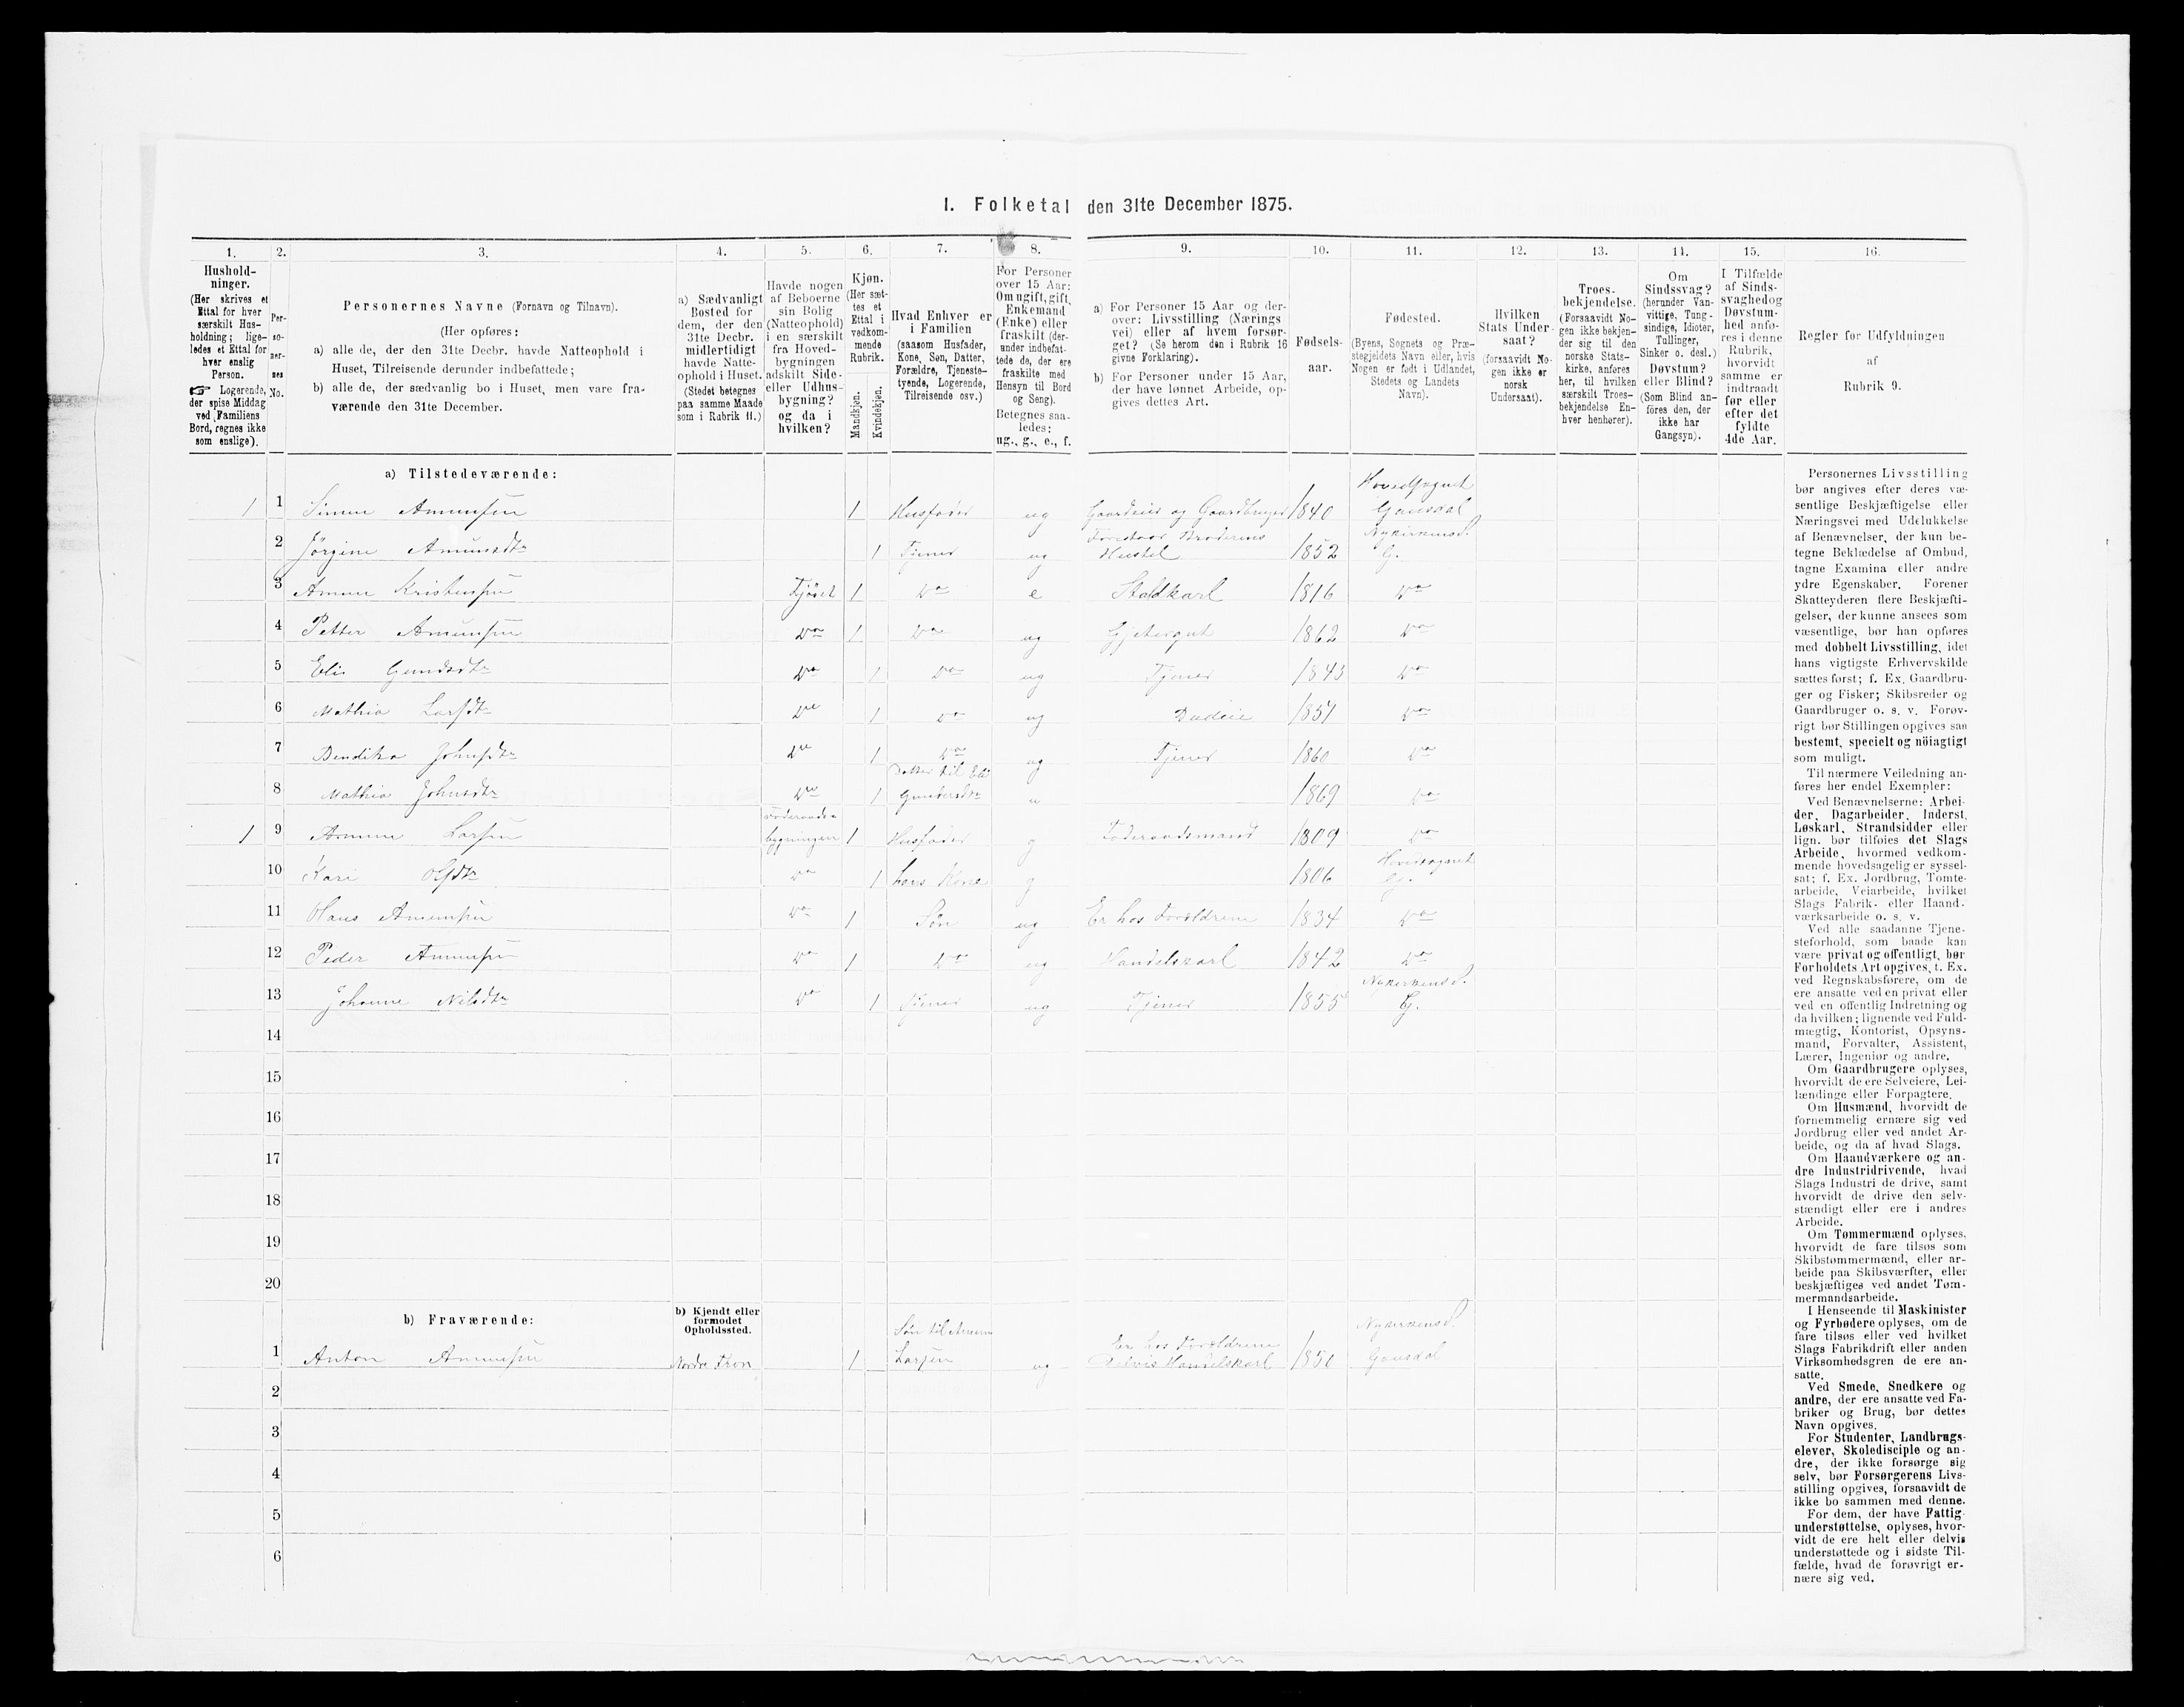 I. Folketal den 31te December 1875.
1. 2. 3. 4. 5. 6. 7. 8. 9. 10. 11. 12. 13. 14. 15. 16.
Hushold-
ninger.
(Her skrives et
Ettal for hver
særskilt Hus-
holdning; lige-
ledes et Ettal for
hver enslig
Person.
☞ Logerende,
der spise Middag
ved Familiens
Bord, regnes ikke
som enslige).
Per-
so-
ner-
nes
No.
Personernes Navne (Fornavn og Tilnavn).
(Her opføres:
a) alle de, der den 31te Decbr. havde Natteophold i
Huset, Tilreisende derunder indbefattede;
b) alle de, der sædvanlig bo i Huset, men vare fra-
værende den 31te December.
a) Sædvanligt
Bosted for
dem, der den
31te Decbr.
midlertidigt
havde Natte-
ophold i Huset.
(Stedet betegnes
paa samme Maade
som i Rubrik 11.)
Havde nogen
af Beboerne
sin Bolig
(Natteophold)
i en særskilt
fra Hoved-
bygningen
adskilt Side-
eller Udhus-
bygning?
og da i
hvilken?
Kjøn.
(Her sæt-
tes et
Ettal i
vedkom-
mende
Rubrik.
Mandkjøn.
Kvindekjøn.
Hvad Enhver er
i Familien
(saasom Husfader,
Kone, Søn, Datter,
Forældre, Tjeneste-
tyende, Logerende,
Tilreisende osv.)
For Personer
over 15 Aar:
Om ugift, gift,
Enkemand
(Enke) eller
fraskilt (der-
under indbefat-
tede de, der ere
fraskilte med
Hensyn til Bord
og Seng).
Betegnes saa-
ledes:
ug., g., e., f.
a) For Personer 15 Aar og der-
over: Livsstilling (Nærings
vei) eller af hvem forsør-
get? (Se herom den i Rubrik 16
givne Forklaring).
b) For Personer under 15 Aar,
der have lønnet Arbeide, op-
gives dettes Art.
Fødsels-
aar.
Fødested.
(Byens, Sognets og Præ-
stegjeldets Navn eller, hvis
Nogen er født i Udlandet,
Stedets og Landets
Navn).
Hvilken
Stats Under-
saat?
(forsaavidt No-
gen ikke er
norsk
Undersaat).
Troes-
bekjendelse.
(Forsaavidt No-
gen ikke bekjen-
der sig til den
norske Stats-
kirke, anføres
her, til hvilken
særskilt Troes-
bekjendelse En-
hver henhører).
Om
Sindssvag?
(herunder Van-
vittige, Tung-
sindige, Idioter,
Tullinger,
Sinker o. desl.)
Døvstum?
eller Blind?
(Som Blind an-
föres den, der
ikke har
Gangsyn).
I Tilfælde
af Sinds-
svaghedog
Døvstum-
hed anfø-
res i denne
Rubrik,
hvorvidt
samme er
indtraadt
før eller
efter det
fyldte
4de Aar.
Regler for Udfyldningen
af
Rubrik 9.
a) Tilstedeværende:
1 1 Simen Amunsen 1 Husfader ug Gaardeier og Gaardbruger 1840 Hovedsognet Gausdal
2 Jørgine Amundsdtr 1 Tjener ug Forestaar Broderens Hustel 1852 Nykirkens S. G.
3 Amun Kristensen Fjøset 1 Do e Staldkarl 1816 Do
4 Petter Amunsen Do 1 Do ug Gjetergut 1862 Do
5 Eli Gundsdtr Do 1 Do ug Tjener 1843 Do
6 Mathia Larsdtr Do 1 Do ug Budeie 1857 Do
7 Bendika Johnsdtr Do 1 Do ug Tjener 1860 Do
8 Mathia Johnsdtr Do 1 Datter til Eli Gundersdtr 1869 Do
1 9 Amun Larsen Føderaads-bygningen 1 Husfader g Føderaadsmand 1809 Do
10 Kari Olsdtr Do 1 hans Kone g 1806 Hovedsognet G.
11 Hans Amunsen Do 1 Søn ug Er hos Forældrene 1834 Do
12 Peder Amunsen Do 1 Do ug Handelskarl 1842 Do
13 Johanne Nilsdtr Do 1 Tjener ug Tjener 1855 Nykirkens S. G.
14
15
16
17
18
19
20
b) Fraværende:
b) Kjendt eller
formodet
Opholdssted.
1 Anton Amunsen Nordre Fron 1 Søn til Amun Larsen ug Er hos Forældrene Delvis Handelskarl 1850 Nykirkens S. Gausdal
2
3
4
5
6
Personernes Livsstilling
bør angives efter deres væ-
sentlige Beskjæftigelse eller
Næringsvei med Udelukkelse
af Benævnelser, der kun be-
tegne Beklædelse af Ombud,
tagne Examina eller andre
ydre Egenskaber. Forener
Skatteyderen flere Beskjæfti-
gelser, der kunne ansees som
væsentlige, bør han opføres
med dobbelt Livsstilling, idet
hans vigtigste Erhvervskilde
sættes først; f. Ex. Gaardbru-
ger og Fisker; Skibsreder og
Gaardbruger o. s. v. Forøv-
rigt bør Stillingen opgives saa
bestemt, specielt og nöiagtigt
som muligt.
Til nærmere Veiledning an-
føres her endel Exempler:
Ved Benævnelserne: Arbei-
der, Dagarbeider, Inderst,
Løskarl, Strandsidder eller
lign. bør tilføies det Slags
Arbeide, hvormed vedkom-
mende hovedsagelig er syssel-
sat; f. Ex. Jordbrug, Tomte-
arbeide, Veiarbeide, hvilket
Slags Fabrik- eller Haand-
værksarbeide o. s. v.
Ved alle saadanne Tjene-
steforhold, som baade kan
være privat og offentligt, bør
Forholdets Art opgives, t. Ex.
ved Regnskabsførere, om de
ere ansatte ved en privat eller
ved en offentlig Indretning og
da hvilken; lignende ved Fuld-
mægtig, Kontorist, Opsyns-
mand, Forvalter, Assistent,
Lærer, Ingeniør og andre.
Om Gaardbrugere oplyses,
hvorvidt de ere Selveiere, Lei-
lændinge eller Forpagtere.
Om Husmænd, hvorvidt de
fornemmelig ernære sig ved
Jordbrug eller ved andet Ar-
beide, og da af hvad Slags.
Om Haandværkere og an-
dre Industridrivende, hvad
Slags Industri de drive, samt
hvorvidt de drive den selv-
stændigt eller ere i andres
Arbeide.
Om Tømmermænd oplyses,
hvorvidt de fare tilsøs som
Skibstømmermænd, eller ar-
beide paa Skibsværfter, eller
beskjæftiges ved andet Tøm-
mermandsarbeide.
I Henseende til Maskinister
og Fyrbødere oplyses, om de
fare tilsøs eller ved hvilket
Slags Fabrikdrift eller anden
Virksomhedsgren de ere an-
satte.
Ved Smede, Snedkere og
andre, der ere ansatte ved Fa-
briker og Brug, bør dettes
Navn opgives.
For Studenter, Landbrugs-
elever, Skoledisciple og an-
dre, der ikke forsørge sig
selv, bør Forsørgerens Livs-
stilling opgives, forsaavidt de
ikke bo sammen med denne.
For dem, der have Fattig-
understøttelse, oplyses, hvor-
vidt de ere helt eller delvis
understøttede og i sidste Til-
fælde, hvad de forøvrigt er-
nære sig ved.